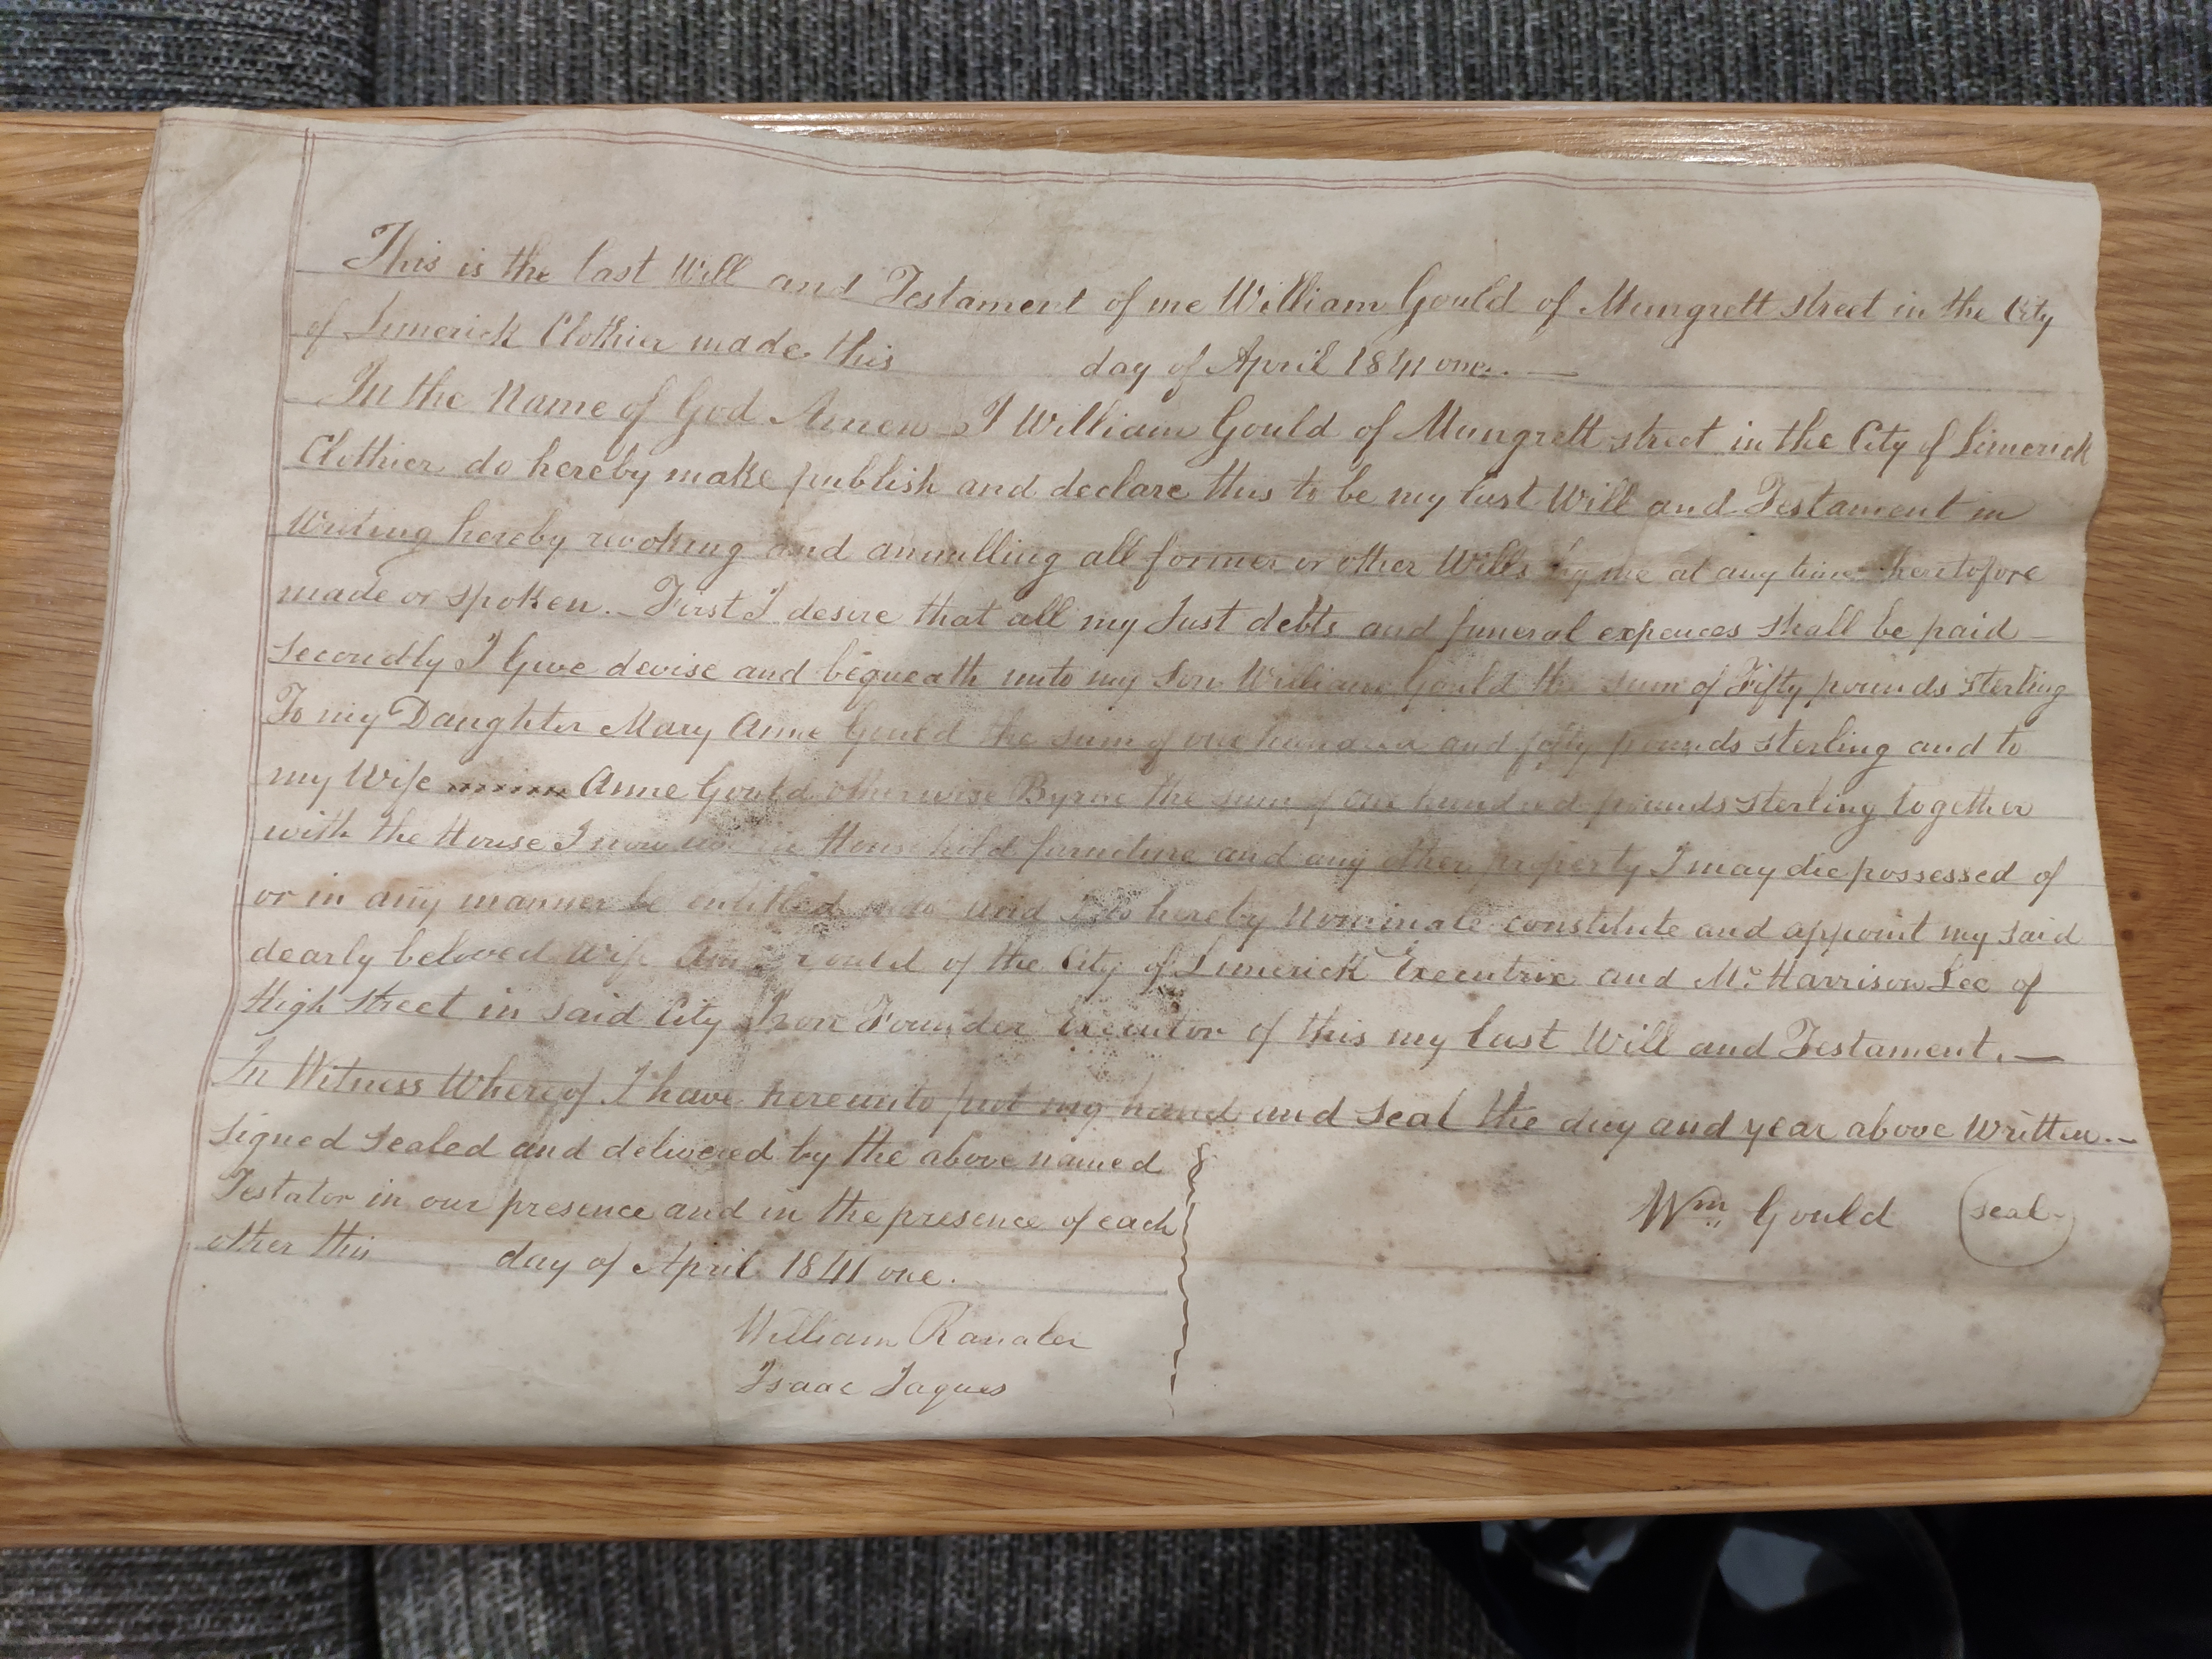 This is the last Will and Testament of me William Gould of Mungrett street in the City
of Limerick Clothier made this day of April 1841 one. —
In the Name of God Amen I William Gould of Mungrett street in the City of Limerick
Clothier do hereby make publish and declare this to be my last Will and Testament in
Writing hereby revoking and annulling all former or other Wills by me at any time heretofore
made or spoken. — First I desire that all my Just debts and funeral expences shall be paid —
Secondly I Give devise and bequeath unto my Son William Gould the sum of Fifty pounds sterling
To my Daughter Mary Anne Gould the sum of one hundred and fifty pounds sterling and to
my Wife Anne Gould otherwise Byrne the sum of one hundred pounds sterling together
with the House I now in Household furniture and any other property I may die possessed of
or in any manner be entitled and I do hereby Nominate constitute and appoint my said
dearly beloved wife Anne Gould of the City of Limerick Executrix and Mr. Harrison Lee of
High Street in said City Iron Founder Executor of this my last Will and Testament. —
In Witness Whereof I have hereunto put my hand and seal the day and year above Written. —
Signed Sealed and delivered by the above named
Testator in our presence and in the presence of each
other this day of April 1841 one.
Wm Gould seal
William
Isaac Jaques